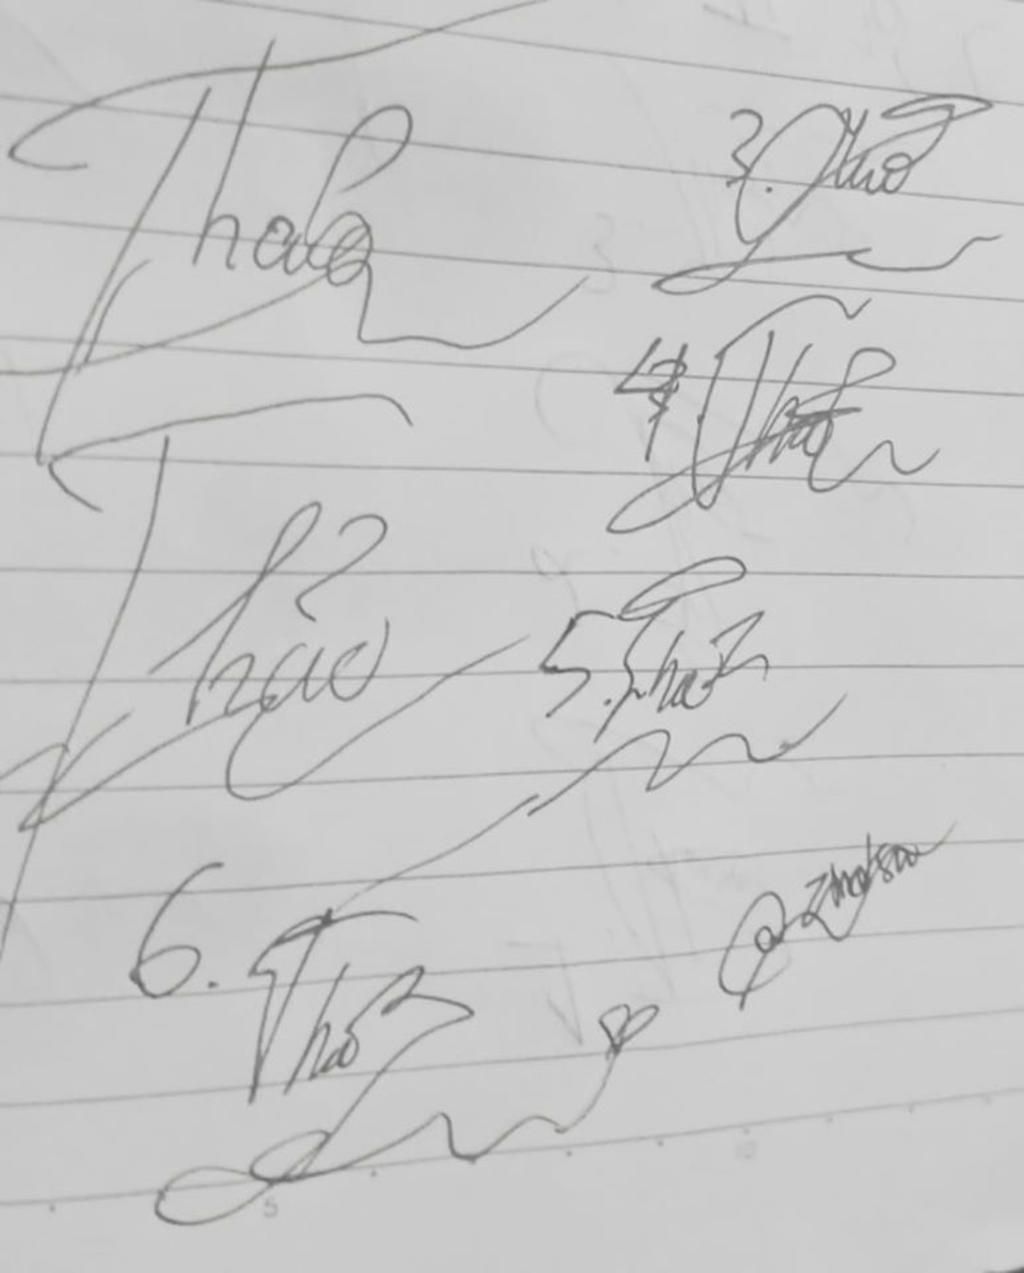 Thảo
Thảo
3. Thảo
4. Thảo
5. Thảo
6. Thảo